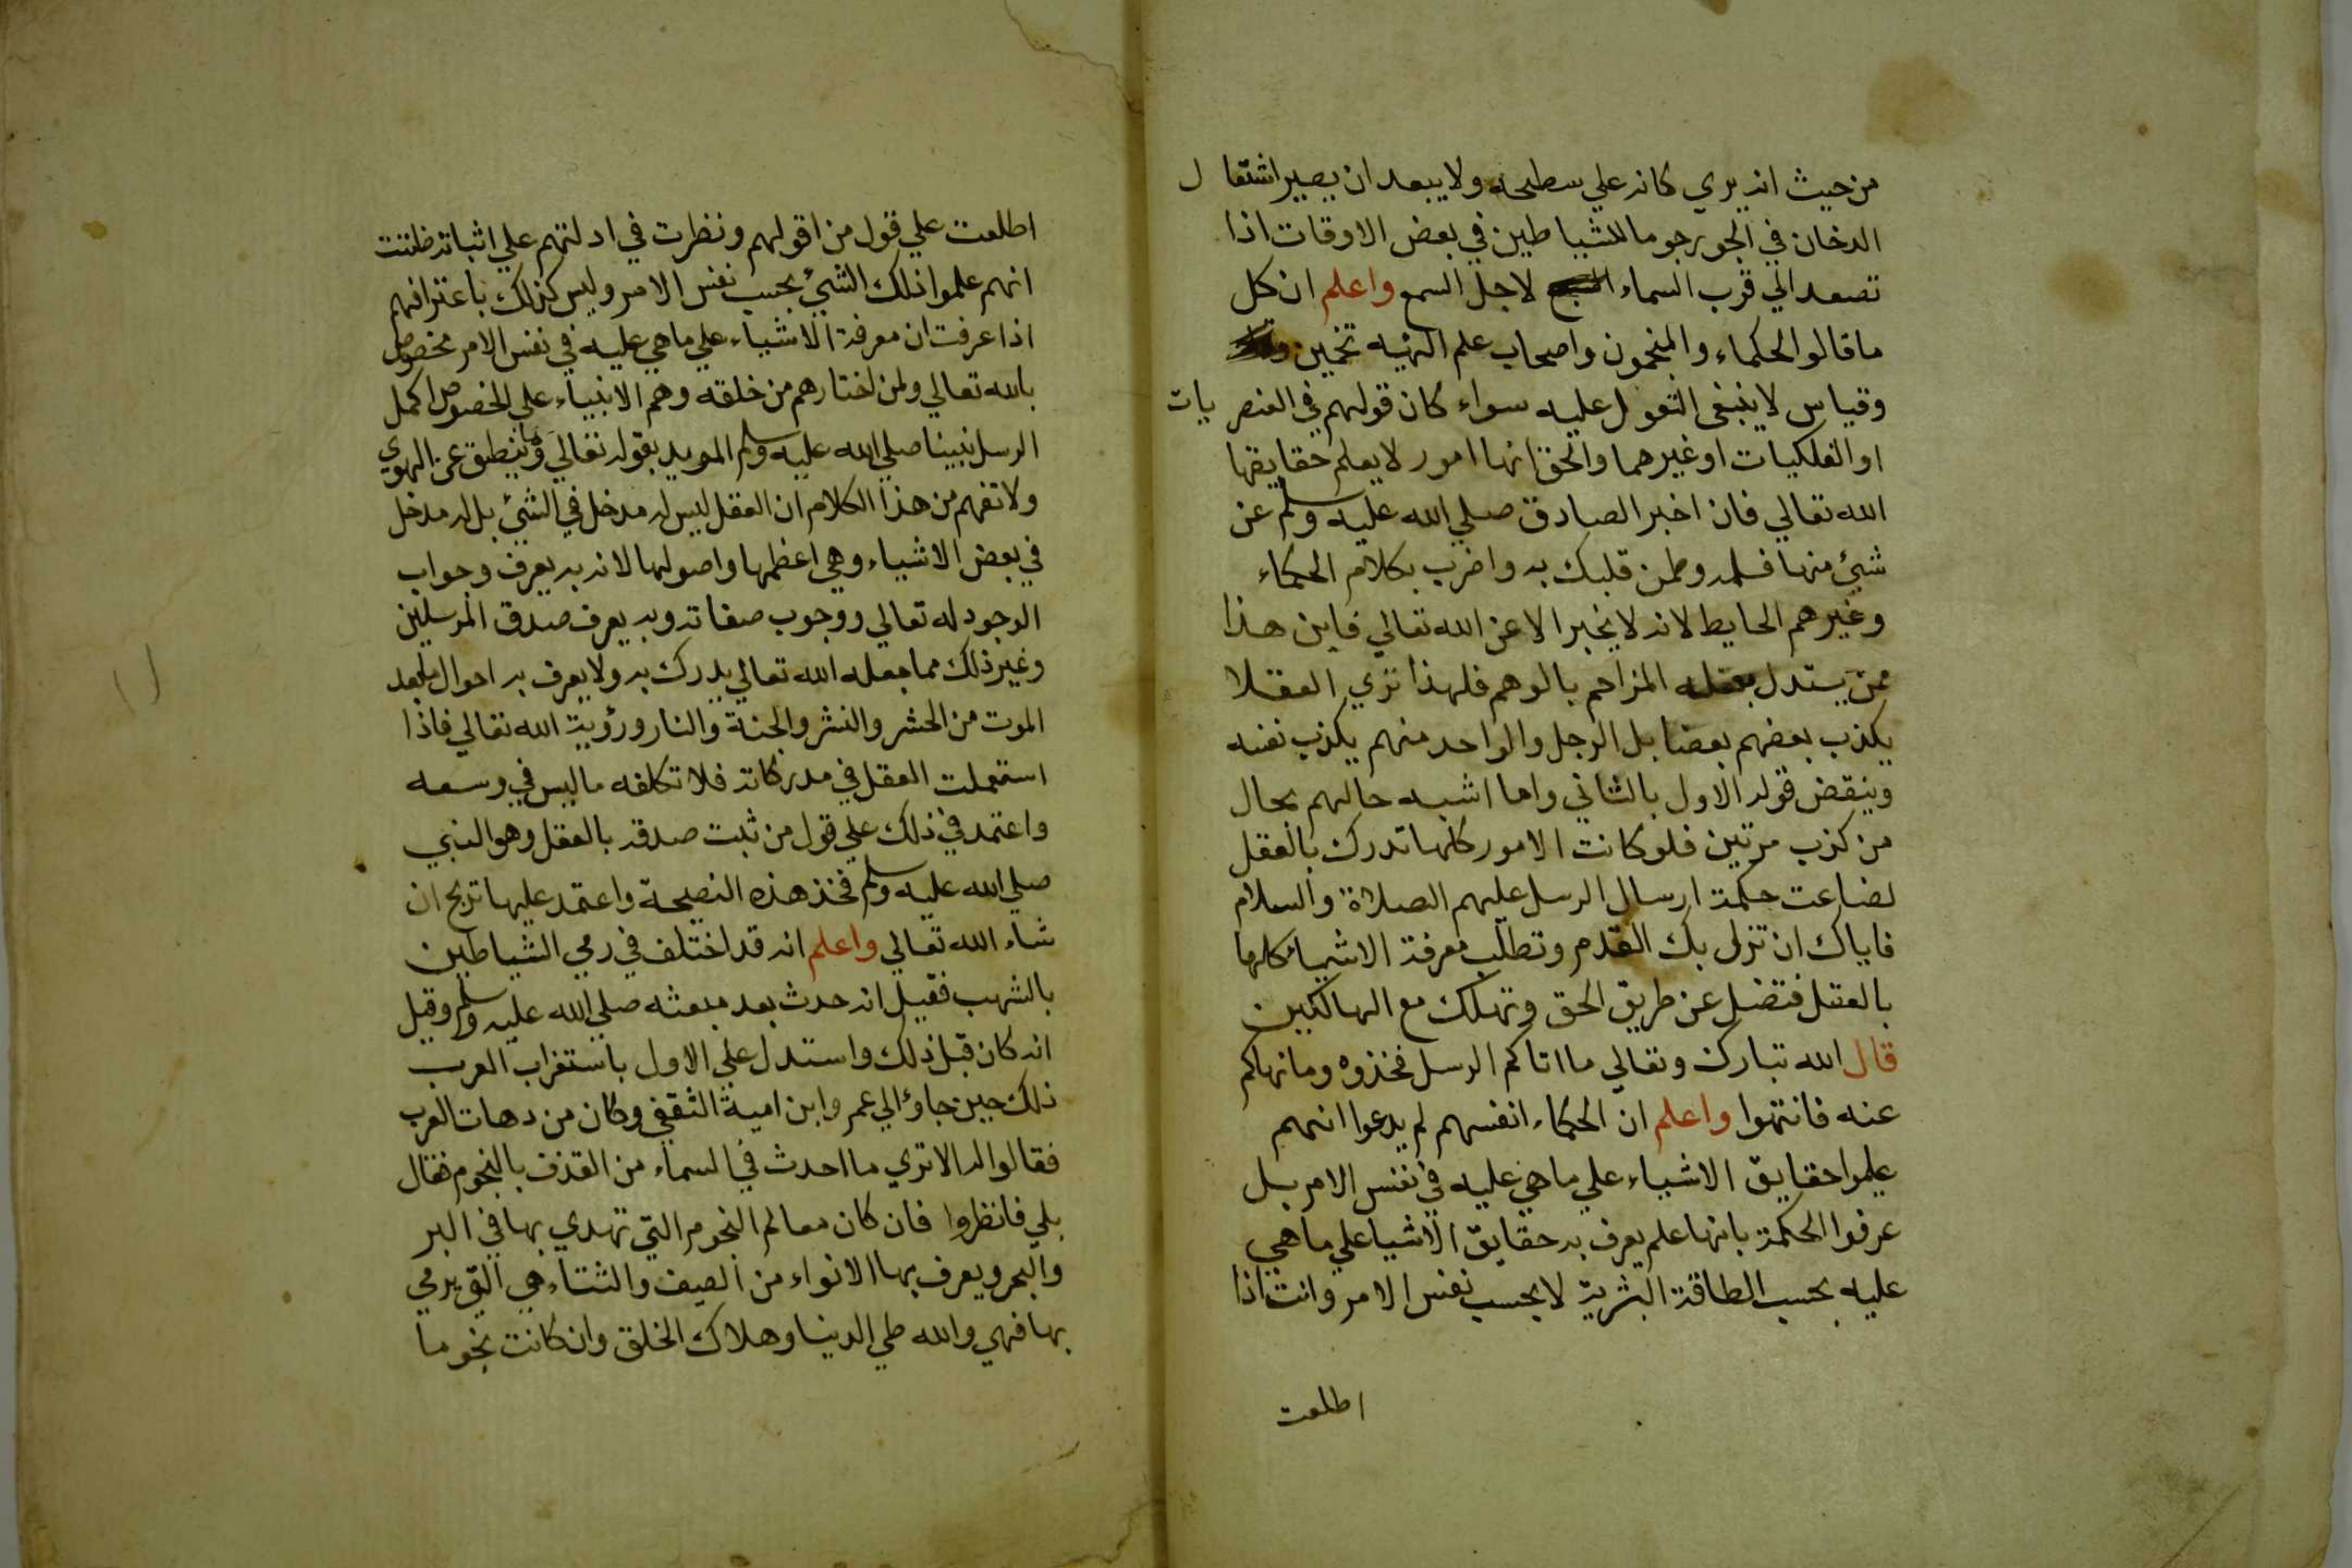 من حيث انه يري كانه علي سطيحه ولا يبعد ان يصير اشتعال
الدخان في الجو رجوما للشياطين في بعض الاوقات اذا
تصعد الي قرب السماء لاجل السمع واعلم ان كل
ما قالوا الحكماء والمنجمون واصحاب علم الهيه تخمين
وقياس لا ينبغي التعول عليه سواء كان قولهم في العنصريات
او الفلكيات او غيرهما والحق انها امور لا يعلم حقايقها
الله تعالي فان اخبر الصادق صلي الله عليه وسلم عن
شيئ منها فسلمه وطمن قلبك به واضرب بكلام الحكماء
وغيرهم الحايط لانه لا يخبر الا عن الله تعالي فاين هذا
ممن يستدل بعقله المزاحم بالوهم فلهذا تري العقلا
يكذب بعضهم بعضا بل الرجل والواحد منهم يكذب نفسه
وينقض قوله الاول بالثاني واما اشبه حالهم بحال
من كذب مرتين فلو كانت الامور كلها تدرك بالعقل
لضاعت حكمة ارسال الرسل عليهم الصلاة والسلام
فاياك ان تزل بك القدم وتطلب معرفة الاشيا كلها
بالعقل فتضل عن طريق الحق وتهلك مع الهالكين
قال الله تبارك وتعالي ما اتاكم الرسل فخذوه وما نهاكم
عنه فانتهوا واعلم ان الحكماء انفسهم لم يدعوا انهم
علموا حقايق الاشياء علي ما هي عليه في نفس الامر بل
عرفوا الحكمة بانها علم يعرف به حقايق الاشيا علي ما هي
عليه بحسب الطاقة البشرية لا بحسب نفس الامر وانت اذا
اطلعت
اطلعت علي قول من اقولهم ونظرت في ادلتهم علي اثباته ظننت
انهم علموا ذلك الشيئ بحسب نفس الامر وليس كذلك باعترافهم
اذا عرفت ان معرفة الاشياء علي ما هي عليه في نفس الامر مخصوص
بالله تعالي ولمن اختارهم من خلقه وهم الانبياء علي الخصوص اكمل
الرسل نبينا صلي الله عليه وسلم المويد بقوله تعالي وما ينطق عن الهوي
ولا تفهم من هذا الكلام ان العقل ليس له مدخل في الشيئ بل له مدخل
في بعض الاشياء وهي اعظمها واصولها لانه به يعرف وجواب
الوجود له تعالي ووجوب صفاته وبه يعرف صدق المرسلين
وغير ذلك مما جعله الله تعالي يدرك به ولا يعرف به احوال ما بعد
الموت من الحشر والنشر والجنة والنار ورؤية الله تعالي فاذا
استعملت العقل في مدركاته فلا تكلفه ما ليس في وسعه
واعتمد في ذلك علي قول من ثبت صدقه بالعقل وهو النبي
صلي الله عليه وسلم فخذ هذه النصيحة واعتمد عليها تربح ان
شاء الله تعالي واعلم انه قد اختلف في رمي الشياطين
بالشهب فقيل انه حدث بعد مبعثه صلي الله عليه وسلم وقيل
انه كان قبل ذلك واستدل علي الاول باستغراب العرب
ذلك حين جاؤا الي عمر وابن امية الثقفي وكان من دهات العرب
فقالوا له الا تري ما احدث في السماء من القذف بالنجوم فقال
بلي فانظروا فان كان معالم النجوم التي تهدي بها في البر
والبحر ويعرف بها الانواء من الصيف والشتاء هي التي يرمي
بها فهي والله طي الدينا وهلاك الخلق وان كانت نجوما